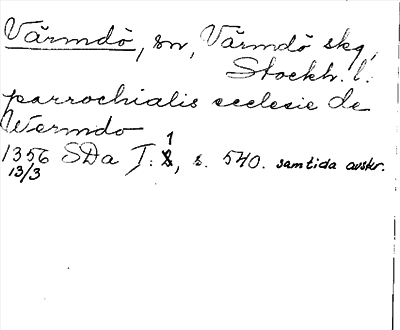 Värmdö, sn, Värmdö skg,
Stockh. l.
parrochialis ecclesie de
Wermdo
1356 SDa I: 1, s. 540. samtida avskr.
13/3